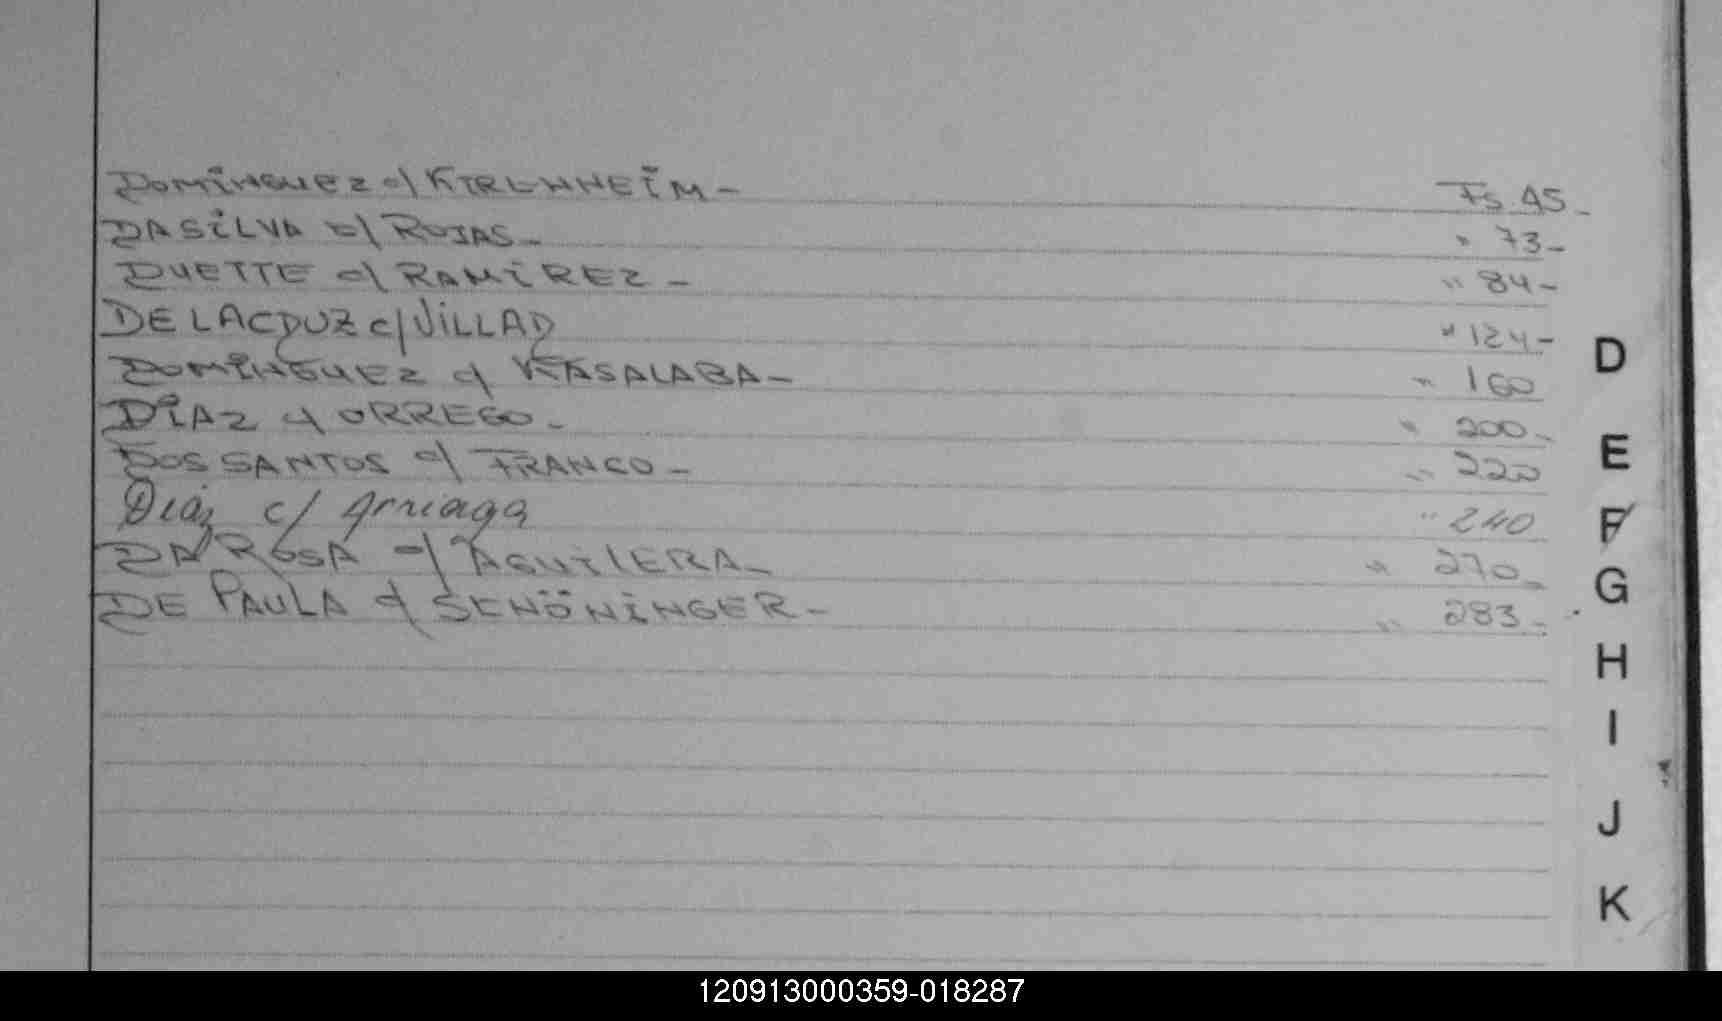 DOMINGUEZ c/ KIRCHHEIM - Fs. 45 -
DA SILVA c/ ROJAS - " 73 -
DUETTE c/ RAMIREZ - " 84 -
DE LACRUZ c/ VILLAR " 124 -
DOMINGUEZ c/ KASALABA - " 160
DIAZ c/ ORREGO - " 200 -
DOS SANTOS c/ FRANCO - " 220
Diaz c/ Arriaga " 240
DA ROSA c/ AGUILERA - " 270 -
DE PAULA c/ SCHÖNINGER - " 283 -
D
E
F
G
H
I
J
K
120913000359-018287